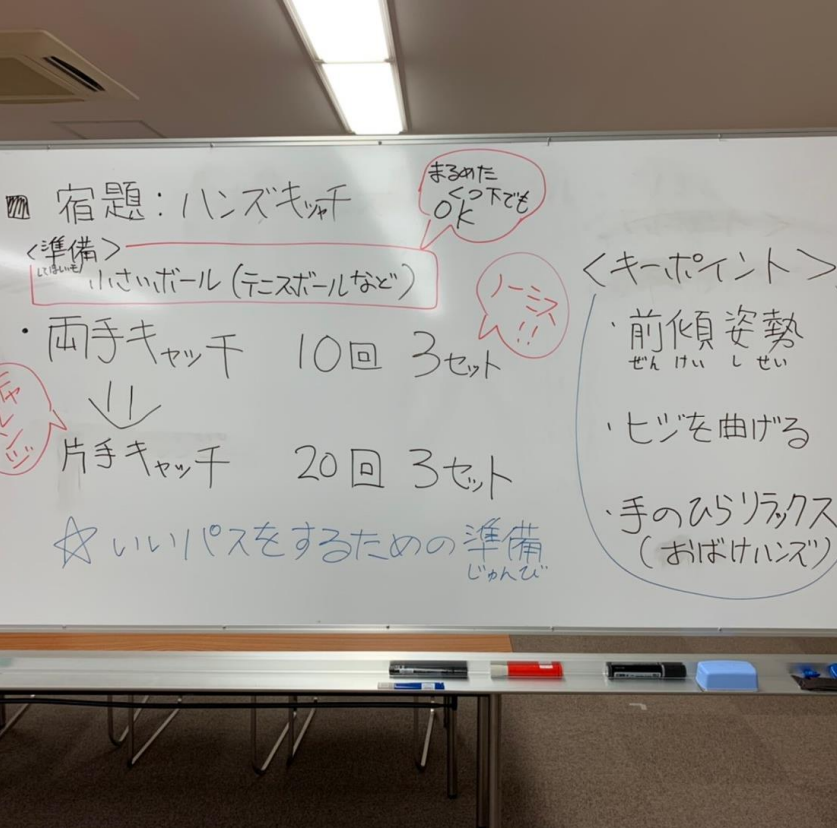 宿題:ハンズキャッチ
まるめた
くつ下でも
OK
<準備>
してほしいモノ
小さいボール(テニスボールなど)
・両手キャッチ 10回 3セット
ノーミス
!!
チャレンジ
片手キャッチ 20回 3セット
☆いいパスをするための準備
じゅんび
<キーポイント>
・前傾姿勢
ぜん けい し せい
・ヒジを曲げる
・手のひらリラックス
(おばけハンズ)